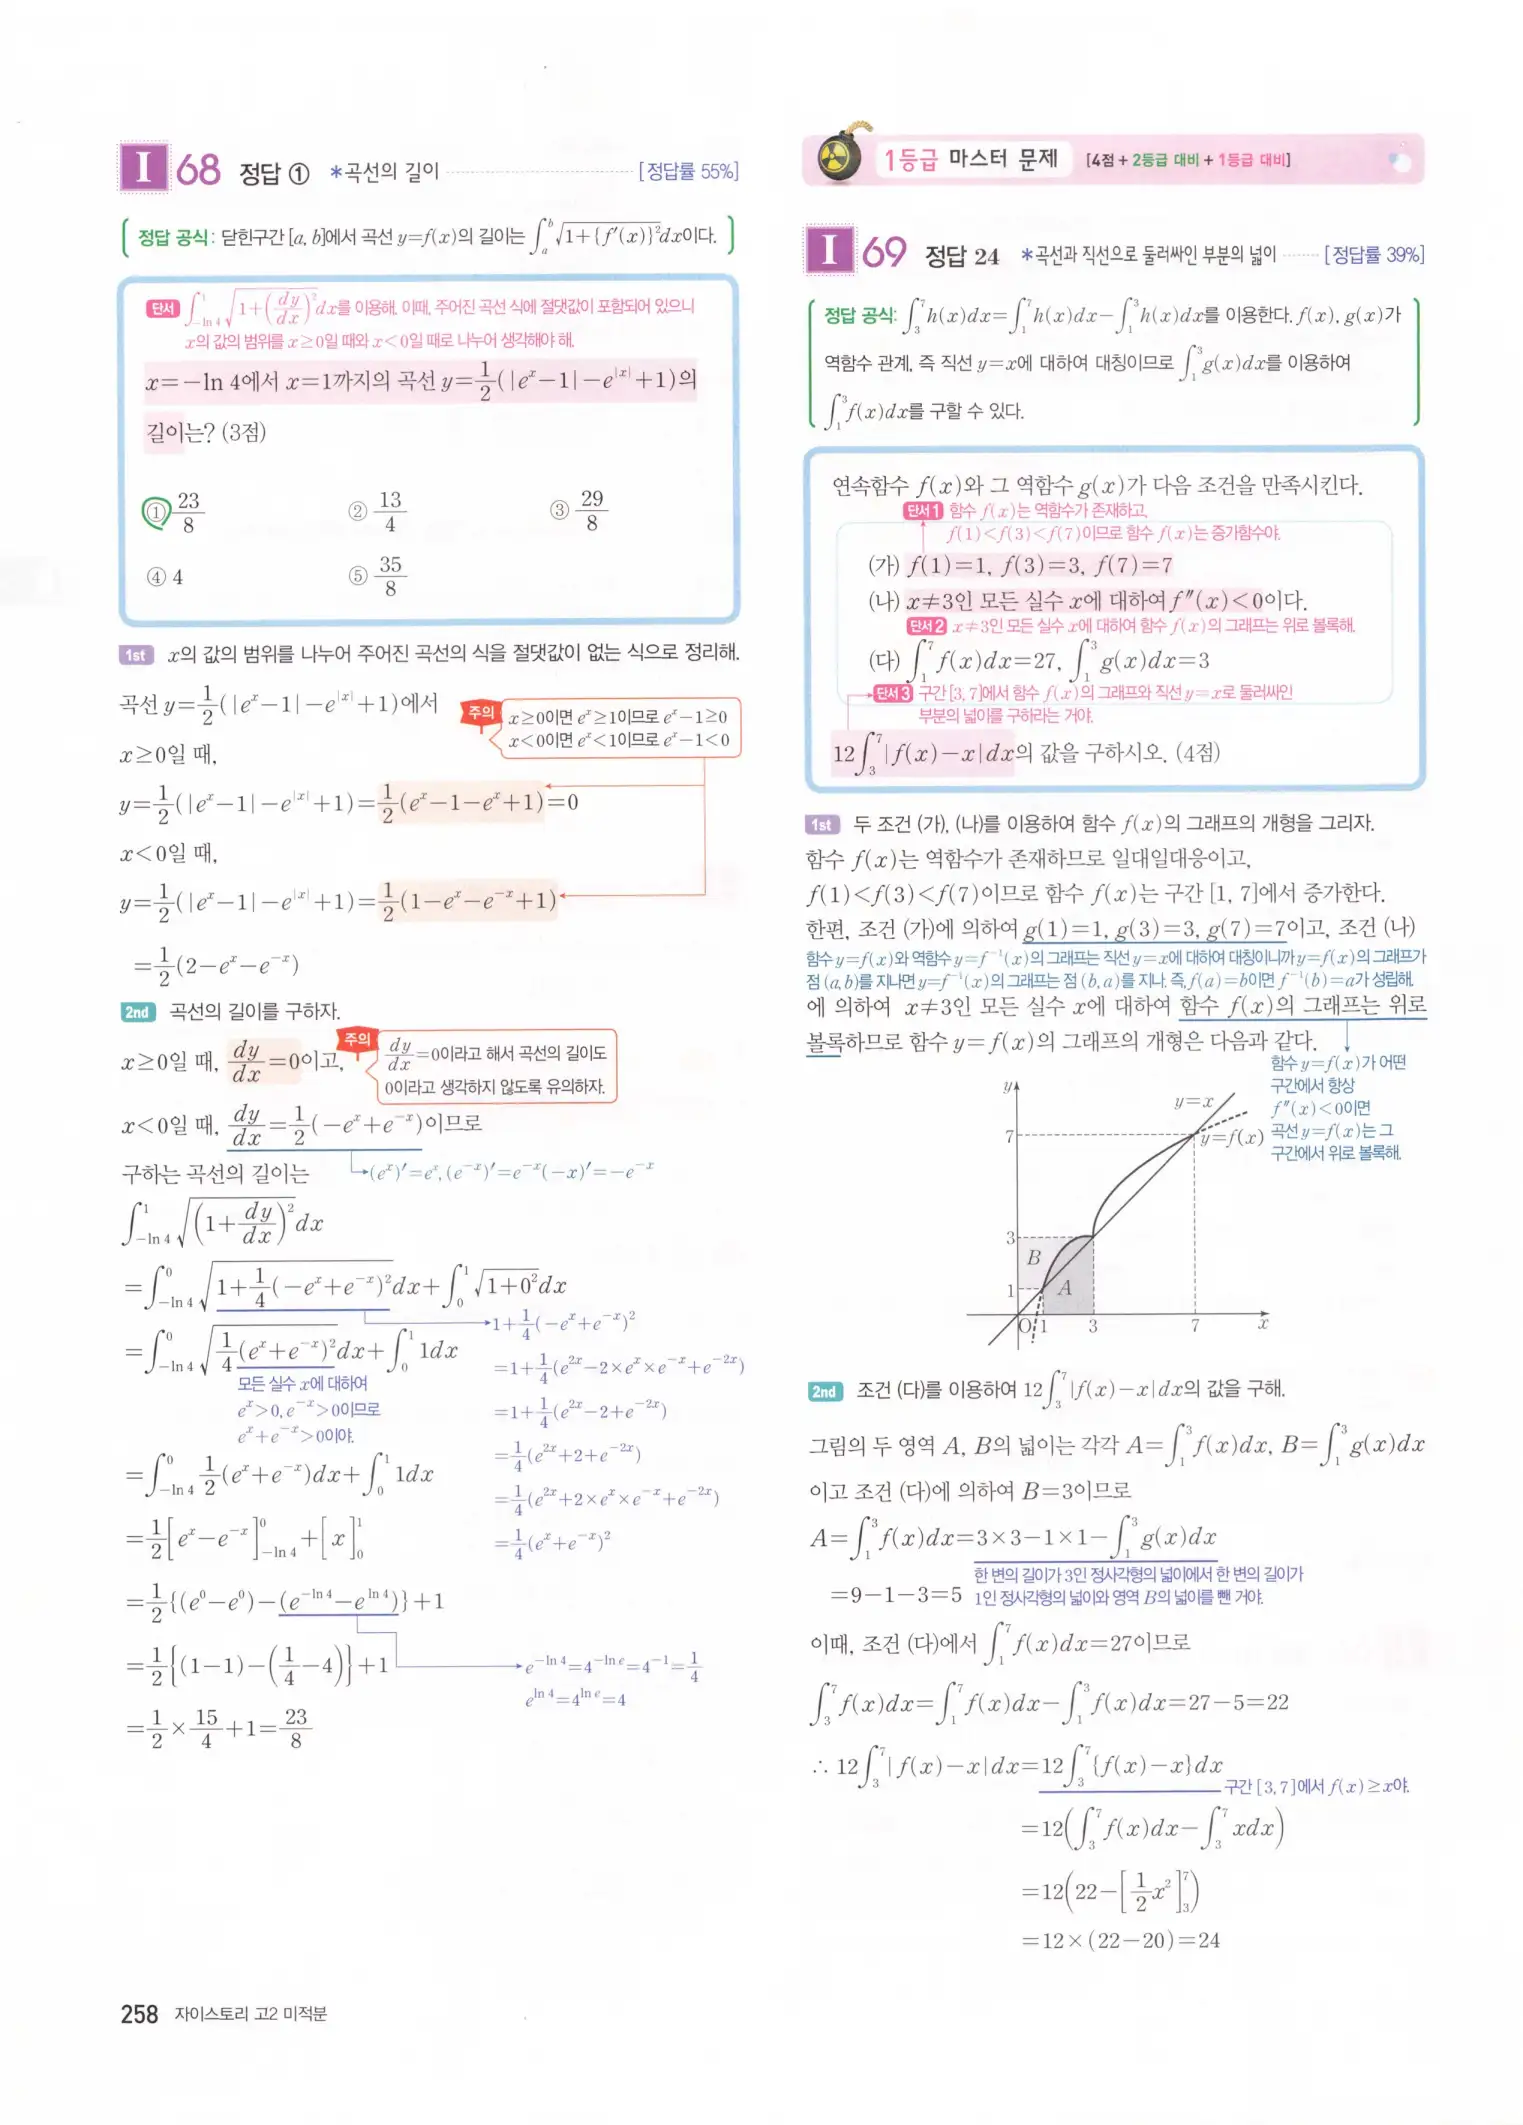 I 68 정답 ① *곡선의 길이 [정답률 55%]
정답 공식: 닫힌구간 [a, b]에서 곡선 y=f(x)의 길이는 ∫_a^b √(1+{f′(x)}²)dx이다.
단서 ∫_{-ln 4}^1 √(1+(dy/dx)²)dx를 이용해. 이때, 주어진 곡선 식에 절댓값이 포함되어 있으니
x의 값의 범위를 x≥0일 때와 x<0일 때로 나누어 생각해야 해.
x=−ln 4에서 x=1까지의 곡선 y=1/2(|e^x−1|−e^{|x|}+1)의
길이는? (3점)
① 23/8 ② 13/4 ③ 29/8
④ 4 ⑤ 35/8
1st x의 값의 범위를 나누어 주어진 곡선의 식을 절댓값이 없는 식으로 정리해.
곡선 y=1/2(|e^x−1|−e^{|x|}+1)에서
주의 x≥0이면 e^x≥1이므로 e^x−1≥0
x<0이면 e^x<1이므로 e^x−1<0
x≥0일 때,
y=1/2(|e^x−1|−e^{|x|}+1)=1/2(e^x−1−e^x+1)=0
x<0일 때,
y=1/2(|e^x−1|−e^{|x|}+1)=1/2(1−e^x−e^{−x}+1)
=1/2(2−e^x−e^{−x})
2nd 곡선의 길이를 구하자.
x≥0일 때, dy/dx=0이고,
주의 dy/dx=0이라고 해서 곡선의 길이도
0이라고 생각하지 않도록 유의하자.
x<0일 때, dy/dx=1/2(−e^x+e^{−x})이므로
구하는 곡선의 길이는 (e^x)′=e^x, (e^{−x})′=e^{−x}(−x)′=−e^{−x}
∫_{−ln 4}^1 √((1+dy/dx)²)dx
=∫_{−ln 4}^0 √(1+1/4(−e^x+e^{−x})²)dx+∫_0^1 √(1+0²)dx
=∫_{−ln 4}^0 √(1/4(e^x+e^{−x})²)dx+∫_0^1 1dx
모든 실수 x에 대하여
e^x>0, e^{−x}>0이므로
e^x+e^{−x}>0이야.
1+1/4(−e^x+e^{−x})²
=1+1/4(e^{2x}−2×e^x×e^{−x}+e^{−2x})
=1+1/4(e^{2x}−2+e^{−2x})
=1/4(e^{2x}+2+e^{−2x})
=1/4(e^{2x}+2×e^x×e^{−x}+e^{−2x})
=1/4(e^x+e^{−x})²
=∫_{−ln 4}^0 1/2(e^x+e^{−x})dx+∫_0^1 1dx
=1/2[e^x−e^{−x}]_{−ln 4}^0+[x]_0^1
=1/2{(e^0−e^0)−(e^{−ln 4}−e^{ln 4})}+1
=1/2{(1−1)−(1/4−4)}+1
e^{−ln 4}=4^{−ln e}=4^{−1}=1/4
e^{ln 4}=4^{ln e}=4
=1/2×15/4+1=23/8
258 자이스토리 고2 미적분
1등급 마스터 문제 [4점 + 2등급 대비 + 1등급 대비]
I 69 정답 24 *곡선과 직선으로 둘러싸인 부분의 넓이 [정답률 39%]
정답 공식: ∫_3^7 h(x)dx=∫_1^7 h(x)dx−∫_1^3 h(x)dx를 이용한다. f(x), g(x)가
역함수 관계, 즉 직선 y=x에 대하여 대칭이므로 ∫_1^3 g(x)dx를 이용하여
∫_1^3 f(x)dx를 구할 수 있다.
연속함수 f(x)와 그 역함수 g(x)가 다음 조건을 만족시킨다.
단서1 함수 f(x)는 역함수가 존재하고,
f(1)<f(3)<f(7)이므로 함수 f(x)는 증가함수야.
(가) f(1)=1, f(3)=3, f(7)=7
(나) x≠3인 모든 실수 x에 대하여 f″(x)<0이다.
단서2 x≠3인 모든 실수 x에 대하여 함수 f(x)의 그래프는 위로 볼록해.
(다) ∫_1^7 f(x)dx=27, ∫_1^3 g(x)dx=3
단서3 구간 [3, 7]에서 함수 f(x)의 그래프와 직선 y=x로 둘러싸인
부분의 넓이를 구하라는 거야.
12∫_3^7 |f(x)−x|dx의 값을 구하시오. (4점)
1st 두 조건 (가), (나)를 이용하여 함수 f(x)의 그래프의 개형을 그리자.
함수 f(x)는 역함수가 존재하므로 일대일대응이고,
f(1)<f(3)<f(7)이므로 함수 f(x)는 구간 [1, 7]에서 증가한다.
한편, 조건 (가)에 의하여 g(1)=1, g(3)=3, g(7)=7이고, 조건 (나)
함수 y=f(x)와 역함수 y=f^{−1}(x)의 그래프는 직선 y=x에 대하여 대칭이니까 y=f(x)의 그래프가
점 (a, b)를 지나면 y=f^{−1}(x)의 그래프는 점 (b, a)를 지나. 즉, f(a)=b이면 f^{−1}(b)=a가 성립해.
에 의하여 x≠3인 모든 실수 x에 대하여 함수 f(x)의 그래프는 위로
볼록하므로 함수 y=f(x)의 그래프의 개형은 다음과 같다.
함수 y=f(x)가 어떤
구간에서 항상
f″(x)<0이면
곡선 y=f(x)는 그
구간에서 위로 볼록해.
y
y=x
7
y=f(x)
3
B
1
A
O 1 3 7 x
2nd 조건 (다)를 이용하여 12∫_3^7 |f(x)−x|dx의 값을 구해.
그림의 두 영역 A, B의 넓이는 각각 A=∫_1^3 f(x)dx, B=∫_1^3 g(x)dx
이고 조건 (다)에 의하여 B=3이므로
A=∫_1^3 f(x)dx=3×3−1×1−∫_1^3 g(x)dx
한 변의 길이가 3인 정사각형의 넓이에서 한 변의 길이가
=9−1−3=5 1인 정사각형의 넓이와 영역 B의 넓이를 뺀 거야.
이때, 조건 (다)에서 ∫_1^7 f(x)dx=27이므로
∫_3^7 f(x)dx=∫_1^7 f(x)dx−∫_1^3 f(x)dx=27−5=22
∴ 12∫_3^7 |f(x)−x|dx=12∫_3^7 {f(x)−x}dx
구간 [3, 7]에서 f(x)≥x야.
=12(∫_3^7 f(x)dx−∫_3^7 xdx)
=12(22−[1/2x²]_3^7)
=12×(22−20)=24